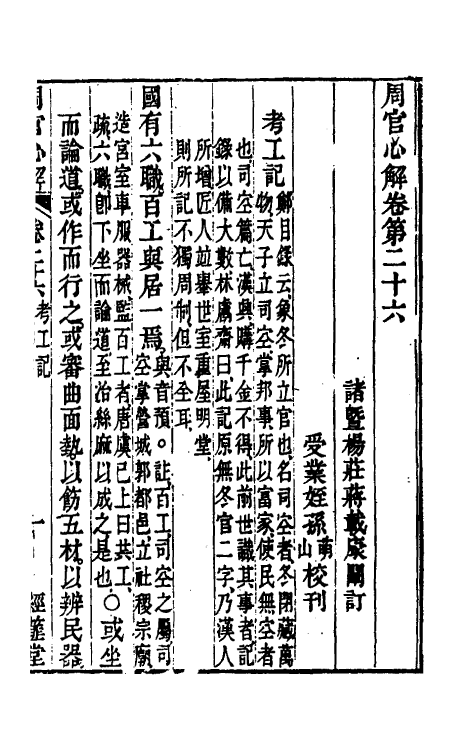 周官心解卷第二十六
諸暨楊莊蔣載康闇訂
受業姪孫萌山校刊
考工記鄭目錄云象冬所立官也名司空者冬閉藏萬
物天子立司空掌邦事所以富家使民無空者
也司空篇亡漢興購千金不得此前世識其事者記
錄以備大數林鬳齋曰此記原無冬官二字乃漢人
所增匠人竝舉世室重屋明堂
則所記不獨周制但不全耳
國有六職百工與居一焉與音預○註百工司空之屬司
空掌營城郭都邑立社稷宗廟
造宮室車服器械監百工者唐虞已上曰共工
疏六職卽下坐而論道至治絲麻以成之是也○或坐
而論道或作而行之或審曲面埶以飭五材以辨民器
周官心解 卷二十六考工記 一 經䉵堂